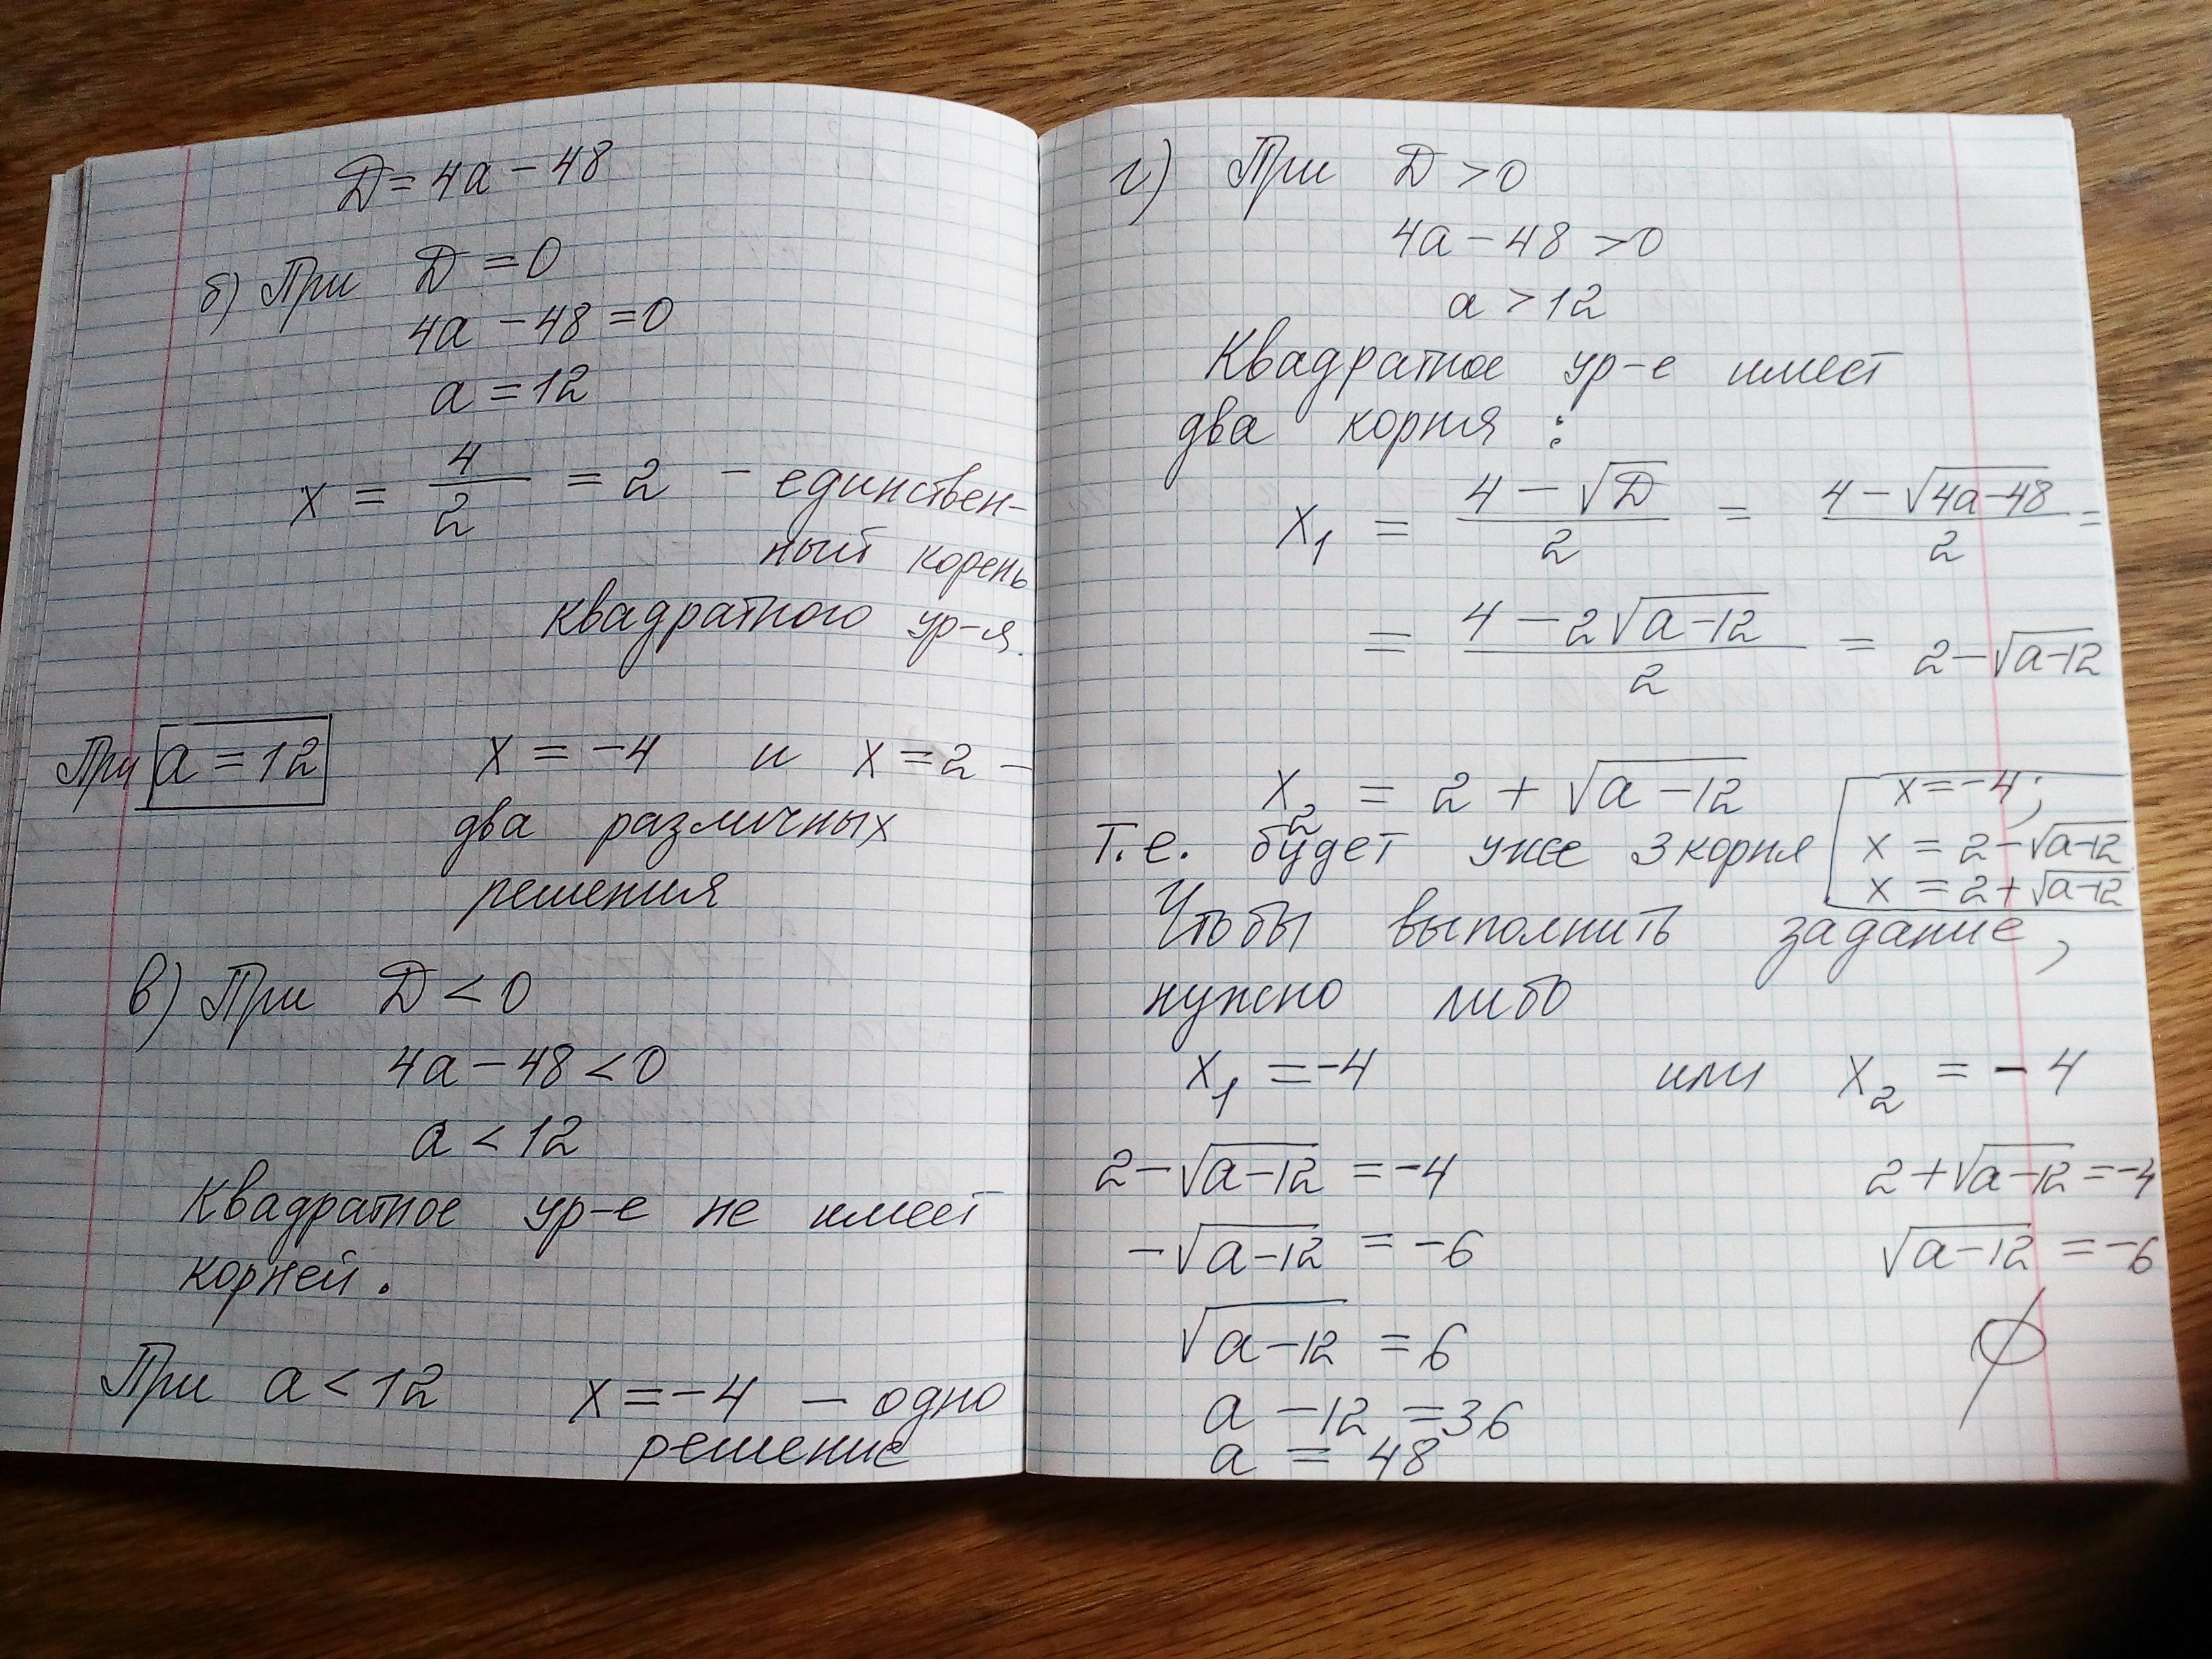 D = 4a − 48
б) При D = 0
4a − 48 = 0
a = 12
x = 4/2 = 2 − единствен-
ный корень
квадратного ур-я.
При a = 12 x = −4 и x = 2 −
два различных
решения
в) При D < 0
4a − 48 < 0
a < 12
Квадратное ур-е не имеет
корней.
При a < 12 x = −4 − одно
решение
г) При D > 0
4a − 48 > 0
a > 12
Квадратное ур-е имеет
два корня :
x₁ = (4 − √D)/2 = (4 − √(4a−48))/2 =
= (4 − 2√(a−12))/2 = 2 − √(a−12)
x₂ = 2 + √(a−12)
x = −4;
Т.е. будет уже 3 корня x = 2 − √(a−12)
x = 2 + √(a−12)
Чтобы выполнить задание,
нужно либо
x₁ = −4 или x₂ = −4
2 − √(a−12) = −4 2 + √(a−12) = −4
−√(a−12) = −6 √(a−12) = −6
√(a−12) = 6 ∅
a − 12 = 36
a = 48